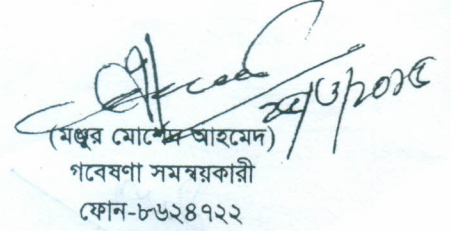 (মঞ্জুর মোর্শেদ আহমেদ)
গবেষণা সমন্বয়কারী
ফোন-৮৬২৪৭২২